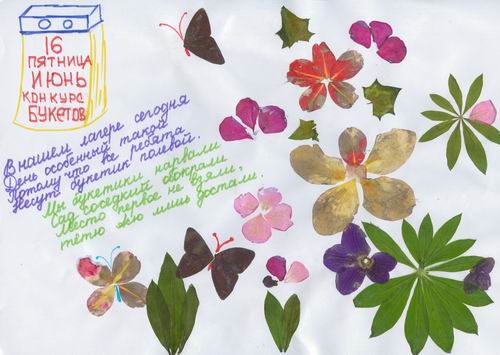 16
ПЯТНИЦА
ИЮНЬ
КОНКУРС
БУКЕТОВ
В нашем лагере сегодня
День особенный такой
Потому что все ребята
Несут букетик полевой.
Мы букетики нарвали
Сад соседский обокрали
Место первое не взяли,
тётю лишь достали.